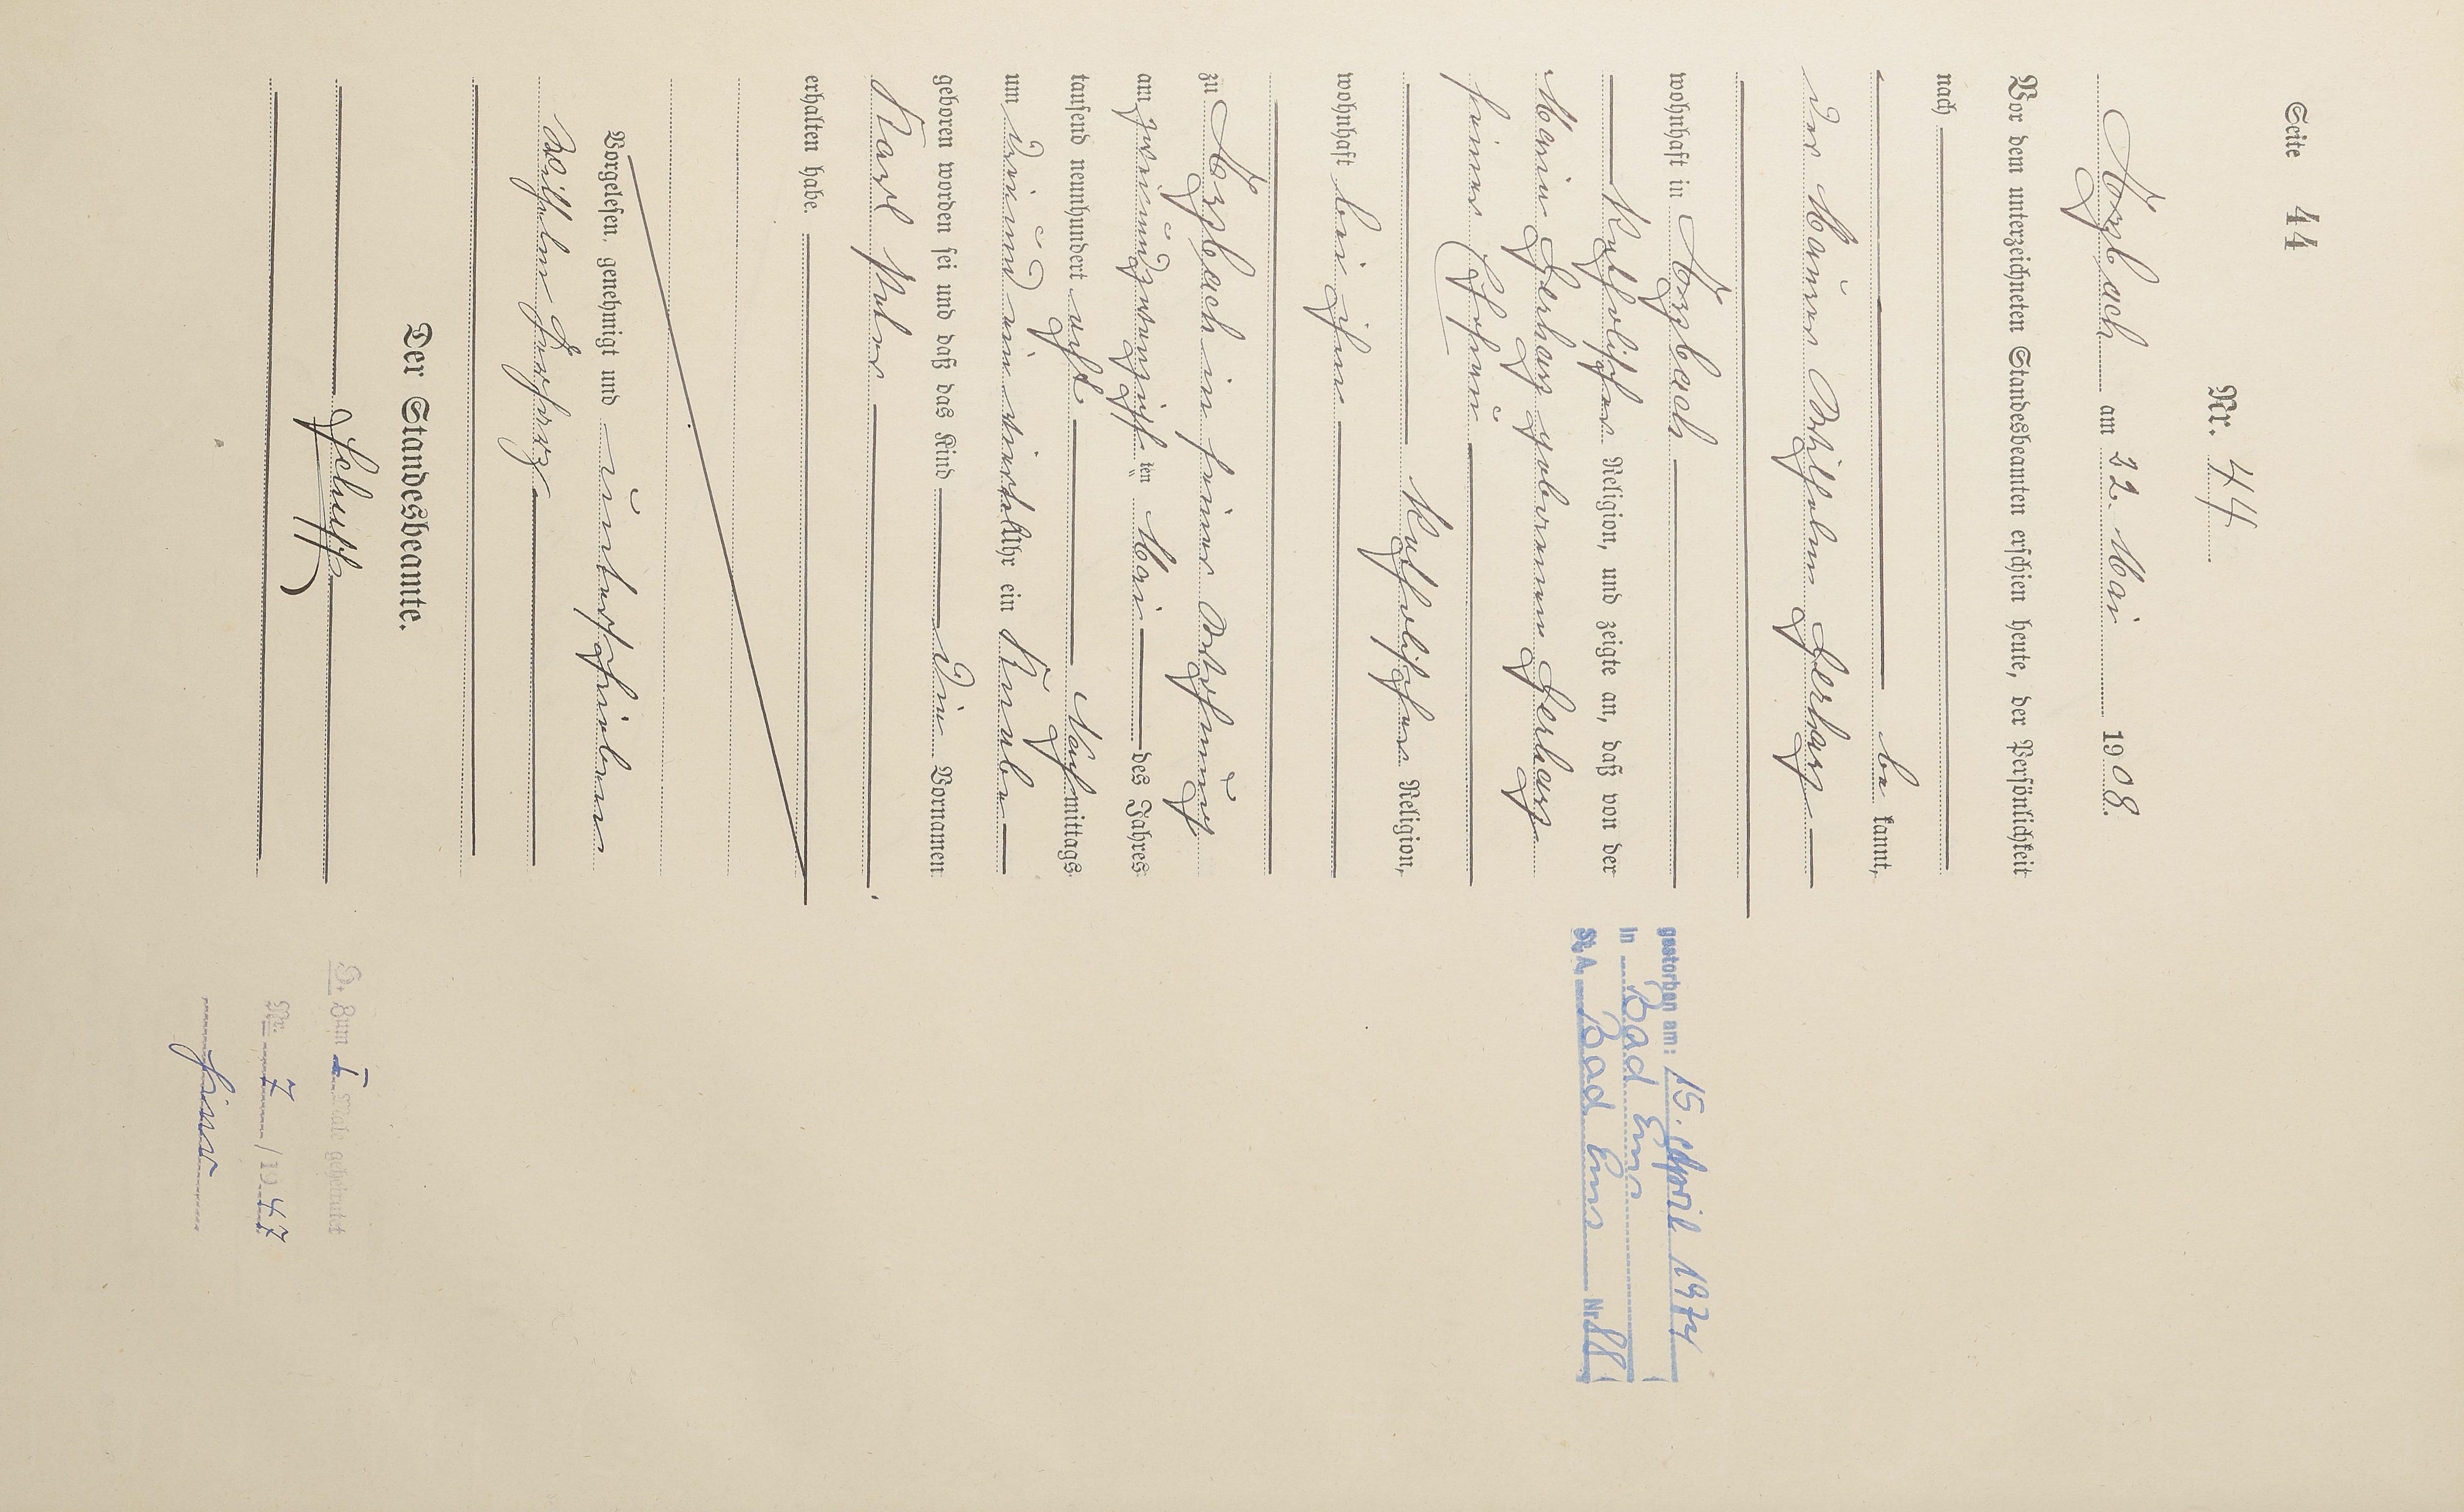 Seite 44
Nr. 44
Arzbach am 22. Mai 1908.
Vor dem unterzeichneten Standesbeamten erschien heute, der Persönlichkeit
nach
be kannt,
der Maurer Wilhelm Gerharz
wohnhaft in Arzbach
Katholischer Religion, und zeigte an, daß von der
Maria Gerharz geborenen Gerharz
seiner Ehefrau
Katholischer Religion,
wohnhaft bei ihm
zu Arzbach in seiner Wohnung
am zweiundzwanzigsten Mai des Jahres
tausend neunhundert acht Nachmittags
um drei und ein viertel Uhr ein Knabe
geboren worden sei und daß das Kind die Vornamen
Karl Peter
erhalten habe.
Vorgelesen, genehmigt und unterschrieben
Wilhelm Gerharz
Der Standesbeamte.
gestorben am: 15. April 1974
in Bad Ems
St. A. Bad Ems Nr. 88
Zum I Male geheiratet
Nr. 7 / 1947
hier